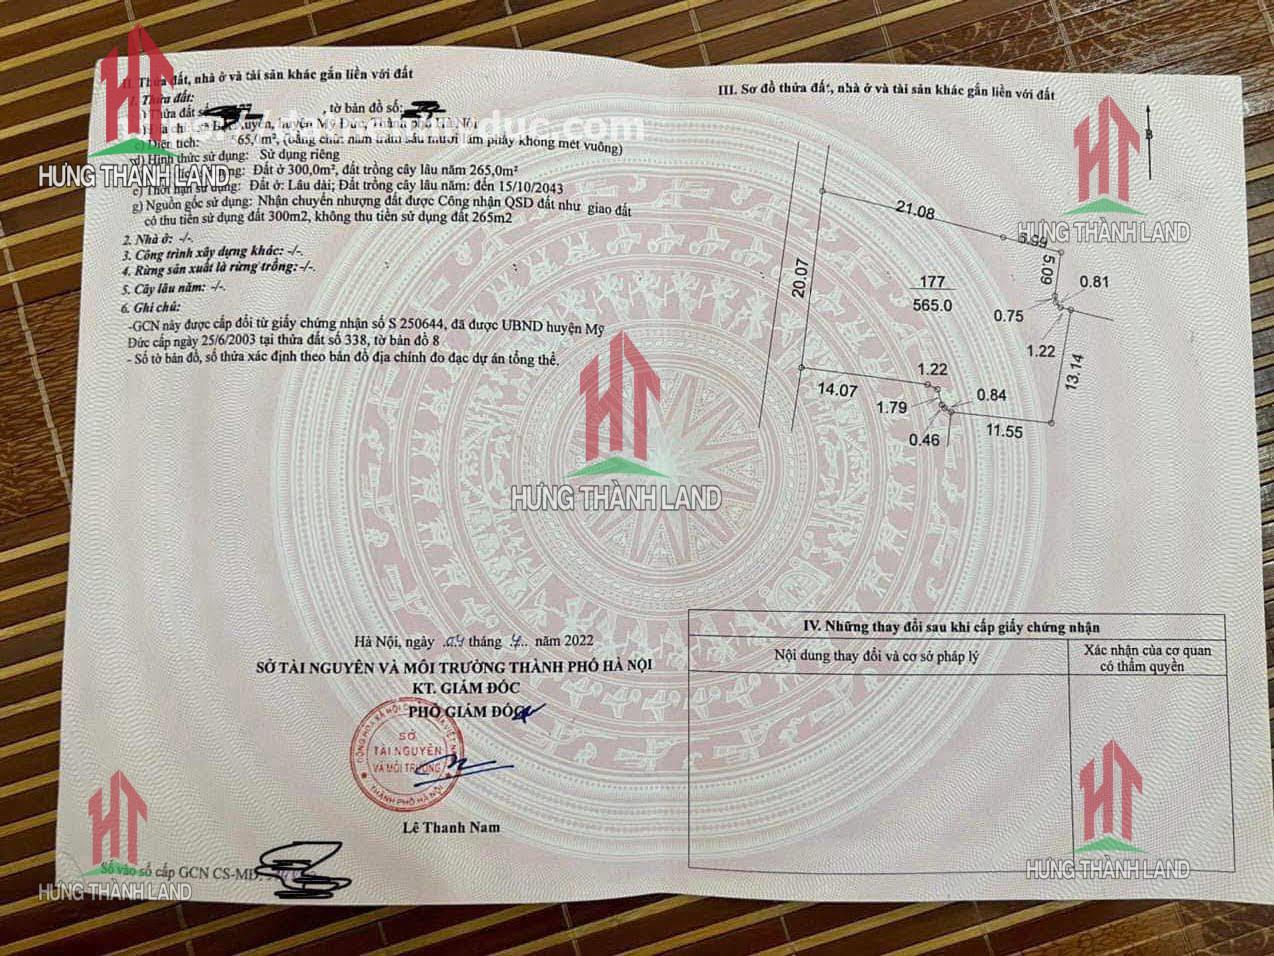 II. Thửa đất, nhà ở và tài sản khác gắn liền với đất
1. Thửa đất:
Thửa đất số , tờ bản đồ số:
huyện Mỹ Đức, Thành phố Hà Nội
c) Diện tích: 565,0m², (bằng chữ: năm trăm sáu mươi lăm phẩy không mét vuông)
d) Hình thức sử dụng: Sử dụng riêng
Đất ở 300,0m², đất trồng cây lâu năm 265,0m²
e) Thời hạn sử dụng: Đất ở: Lâu dài; Đất trồng cây lâu năm: đến 15/10/2043
g) Nguồn gốc sử dụng: Nhận chuyển nhượng đất được Công nhận QSD đất như giao đất
có thu tiền sử dụng đất 300m2, không thu tiền sử dụng đất 265m2
2. Nhà ở: -/-.
3. Công trình xây dựng khác: -/-.
4. Rừng sản xuất là rừng trồng: -/-.
5. Cây lâu năm: -/-.
6. Ghi chú:
-GCN này được cấp đổi từ giấy chứng nhận số S 250644, đã được UBND huyện Mỹ
Đức cấp ngày 25/6/2003 tại thửa đất số 338, tờ bản đồ 8
- Số tờ bản đồ, số thửa xác định theo bản đồ địa chính đo đạc dự án tổng thể.
Hà Nội, ngày 04 tháng 7 năm 2022
SỞ TÀI NGUYÊN VÀ MÔI TRƯỜNG THÀNH PHỐ HÀ NỘI
KT. GIÁM ĐỐC
PHÓ GIÁM ĐỐC
SỞ
TÀI NGUYÊN
VÀ MÔI TRƯỜNG
THÀNH PHỐ HÀ NỘI
Lê Thanh Nam
Số vào sổ cấp GCN CS-MĐ:
III. Sơ đồ thửa đất, nhà ở và tài sản khác gắn liền với đất
B
21.08
5.99
5.09
0.81
20.07
177
565.0
0.75
1.22
13.14
14.07
1.22
1.79
0.84
0.46
11.55
IV. Những thay đổi sau khi cấp giấy chứng nhận
Nội dung thay đổi và cơ sở pháp lý
Xác nhận của cơ quan
có thẩm quyền
HƯNG THÀNH LAND
HƯNG THÀNH LAND
HƯNG THÀNH LAND
HƯNG THÀNH LAND
HƯNG THÀNH LAND